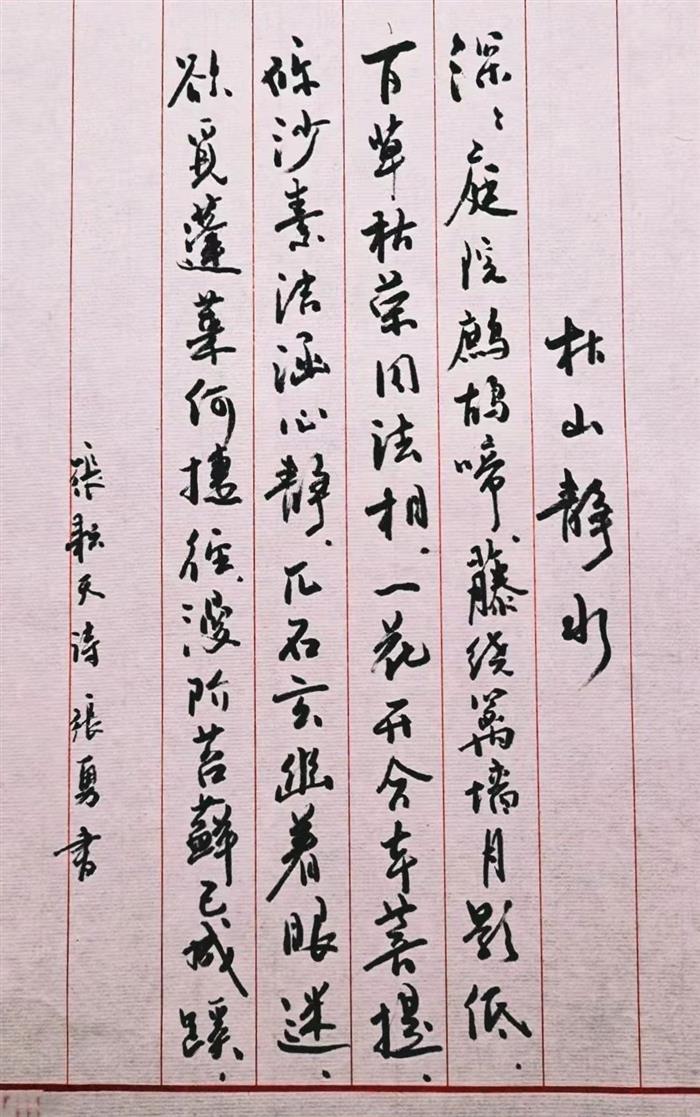 枯山静水
深〻庭院鹧鸪啼、藤绕萬墙月影低.
百草枯荣同法相.一花开合本菩提.
砾沙素洁涵心静、兀石玄幽着眼迷.
欲觅蓬莱何捷径、漫阶苔藓已成蹊.
張耘天诗 張勇书